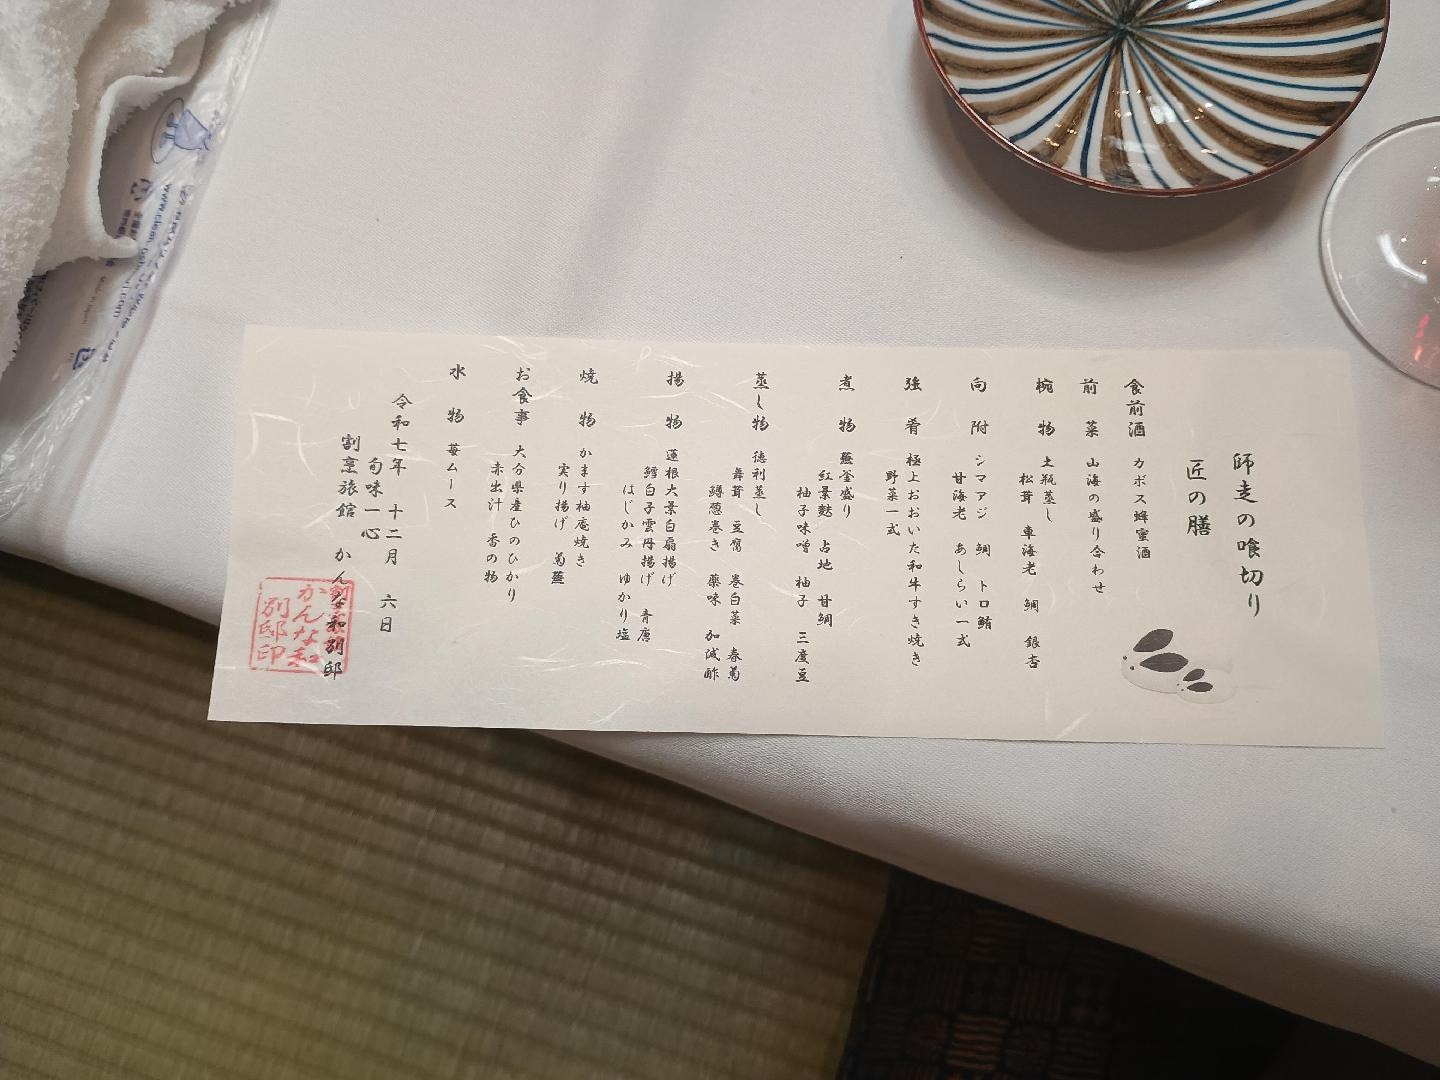 師走の喰切り
匠の膳
食前酒 カボス蜂蜜酒
前菜 山海の盛り合わせ
椀物 土瓶蒸し
松茸 車海老 鯛 銀杏
向附 シマアジ 鯛 トロ鮪
甘海老 あしらい一式
強肴 極上おおいた和牛すき焼き
野菜一式
煮物 蕪釜盛り
紅葉麩 占地 甘鯛
柚子味噌 柚子 三度豆
蒸し物 徳利蒸し
舞茸 豆腐 巻白菜 春菊
鱒葱巻き 薬味 加減酢
揚物 蓮根大葉白扇揚げ
鱈白子雲丹揚げ 青唐
はじかみ ゆかり塩
焼物 かます柚庵焼き
実り揚げ 菊蕪
お食事 大分県産ひのひかり
赤出汁 香の物
水物 苺ムース
令和七年 十二月 六日
旬味一心
割烹旅館 かんな和別邸
かんな和
別邸印